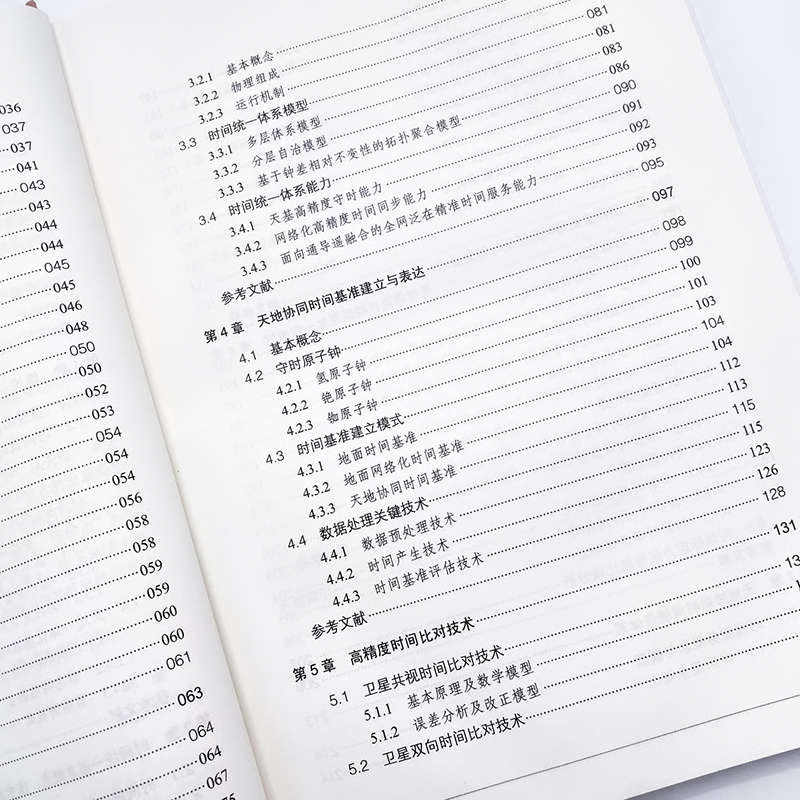 036
037
037
041
043
043
044
044
045
045
046
048
050
050
052
053
054
054
054
056
058
058
059
059
060
060
061
063
064
064
067
3.2.1 基本概念
3.2.2 物理组成
3.2.3 运行机制
3.3 时间统一体系模型 081
3.3.1 多层体系模型 081
3.3.2 分层自治模型 083
3.3.3 基于钟差相对不变性的拓扑聚合模型 086
3.4 时间统一体系能力 090
3.4.1 天基高精度守时能力 091
3.4.2 网络化高精度时间同步能力 092
3.4.3 面向通导遥融合的全网泛在精准时间服务能力 093
参考文献 095
第4章 天地协同时间基准建立与表达 097
4.1 基本概念 098
4.2 守时原子钟 099
4.2.1 氢原子钟 100
4.2.2 铯原子钟 101
4.2.3 铷原子钟 103
4.3 时间基准建立模式 104
4.3.1 地面时间基准 104
4.3.2 地面网络化时间基准 112
4.3.3 天地协同时间基准 113
4.4 数据处理关键技术 115
4.4.1 数据预处理技术 115
4.4.2 时间产生技术 123
4.4.3 时间基准评估技术 126
参考文献 128
第5章 高精度时间比对技术 131
5.1 卫星共视时间比对技术 13
5.1.1 基本原理及数学模型
5.1.2 误差分析及改正模型
5.2 卫星双向时间比对技术